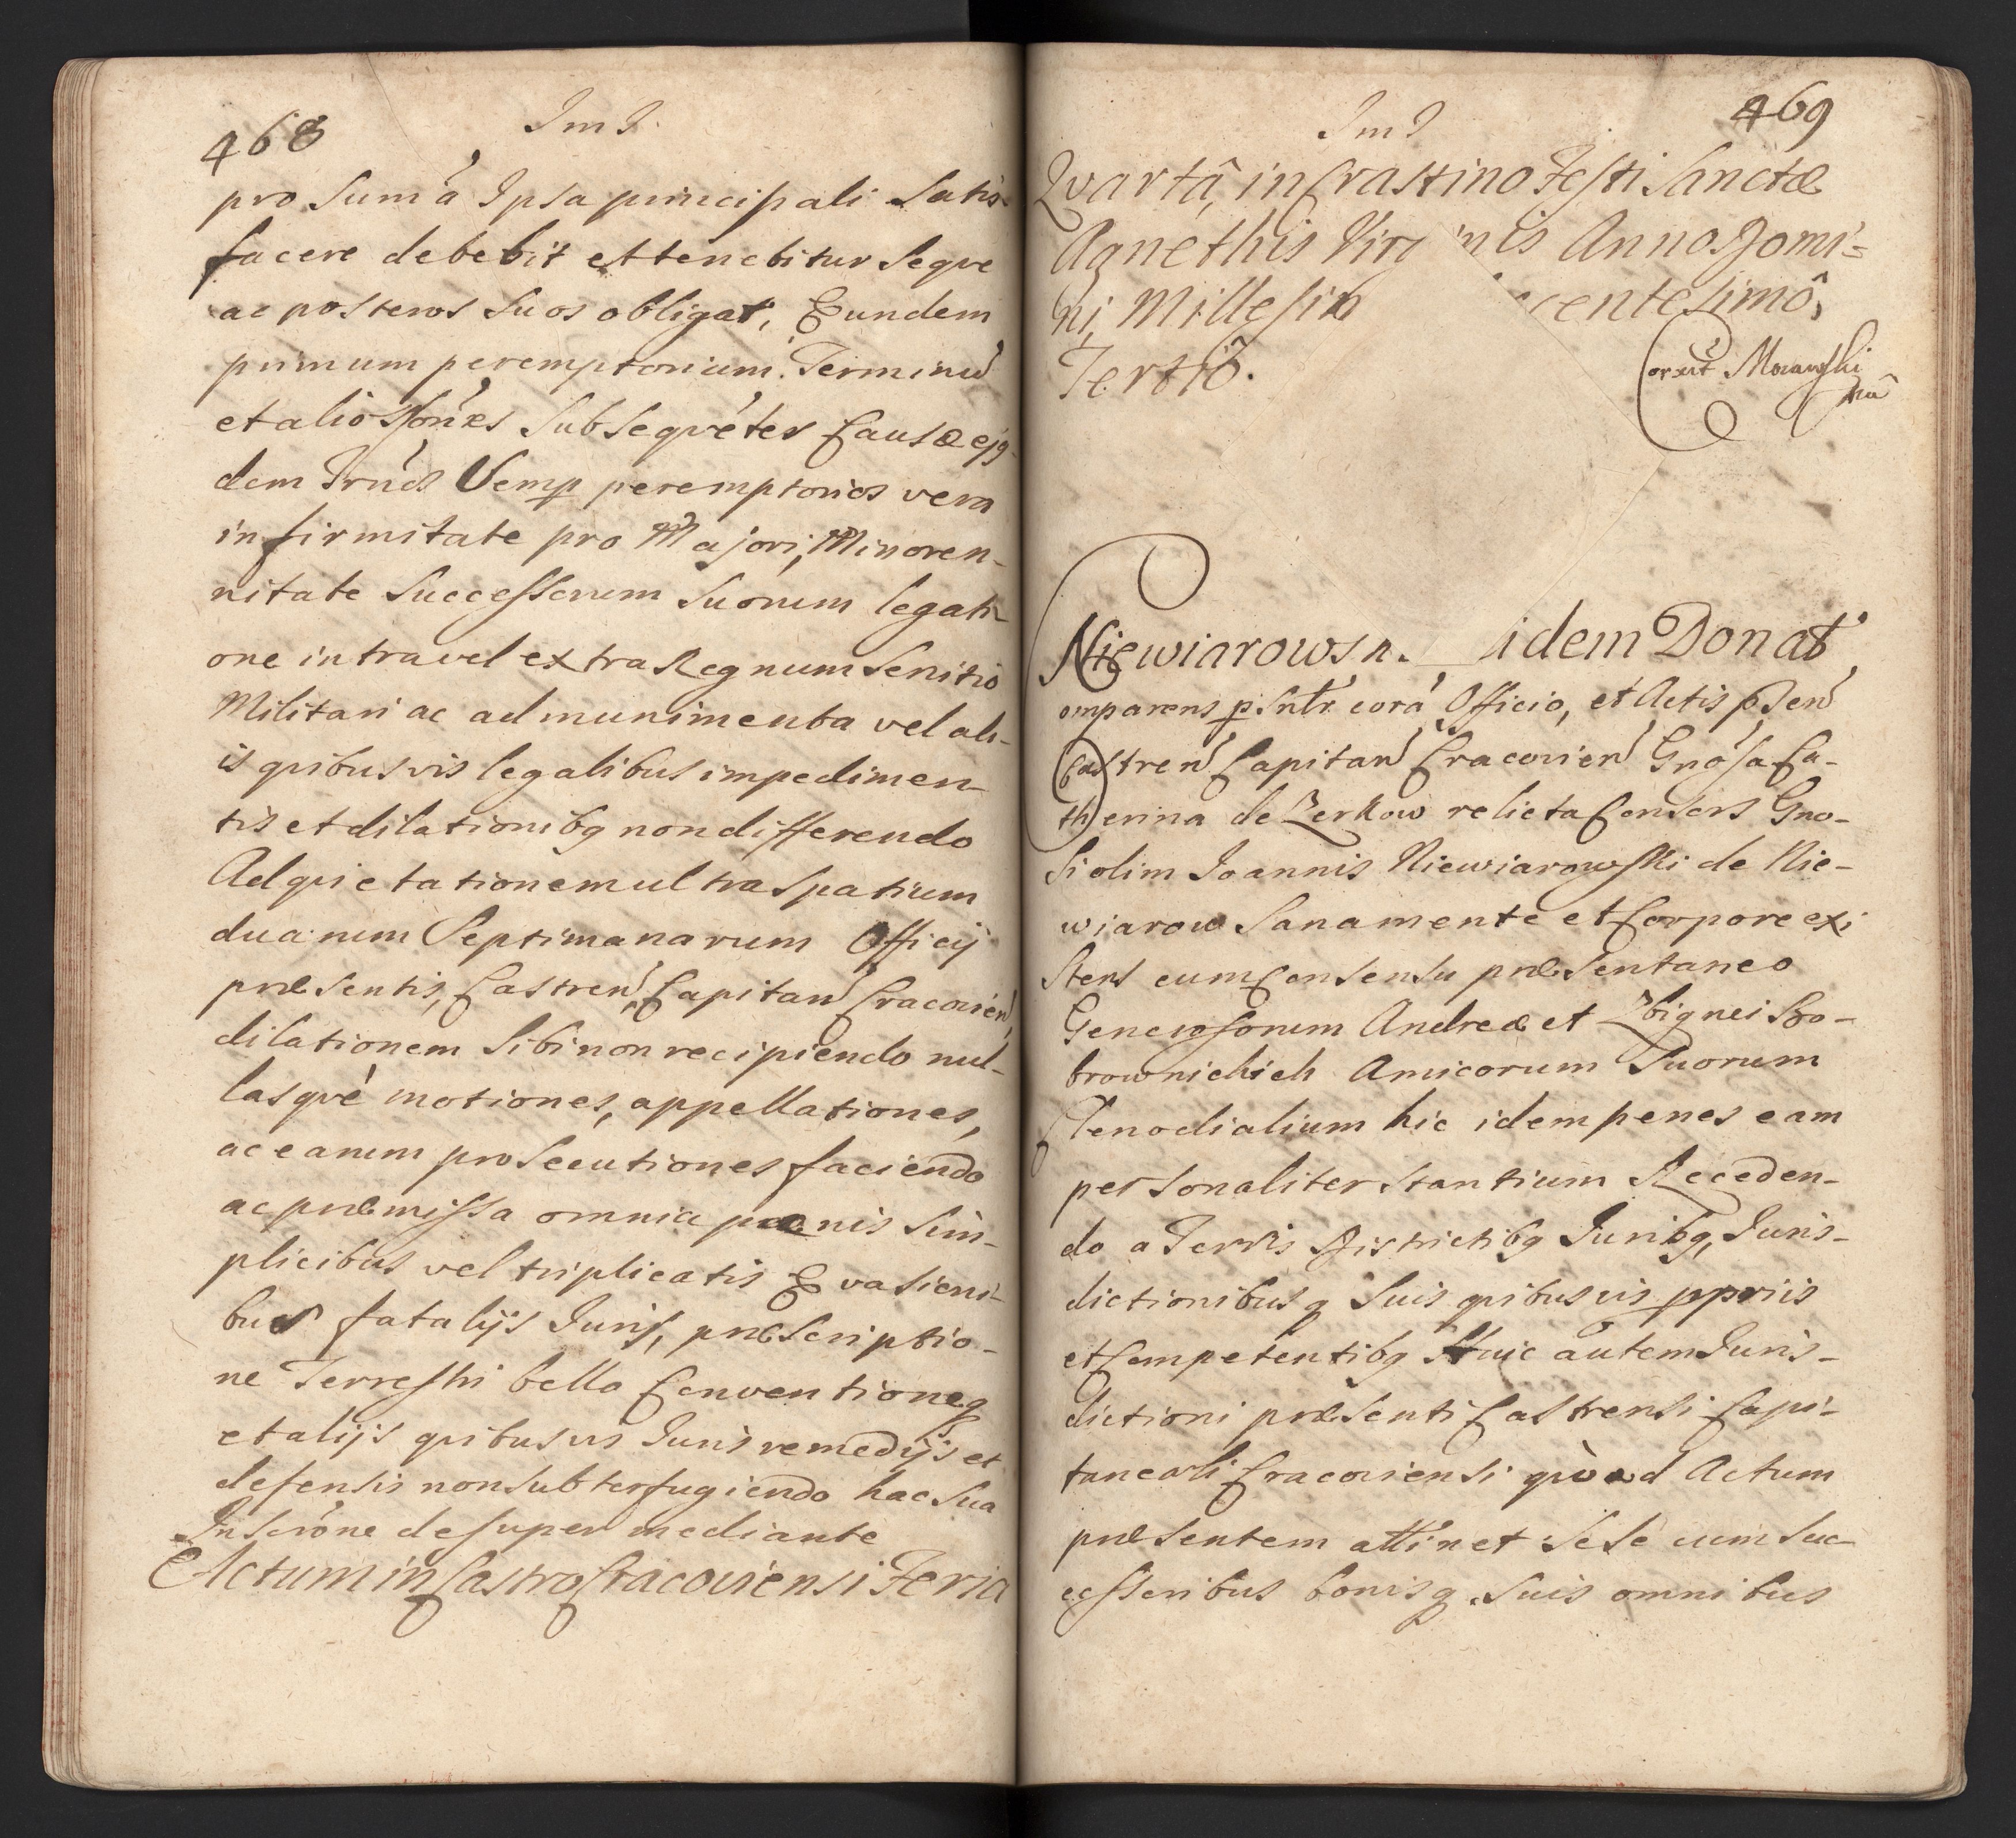 468
pro Sum̃a Ipsa principali Satis
facere debebit et tenebitur Seqve
ac posteros Suos obligat, Eundem
primum peremptorium Terminũ
et alios õnes Subseqvẽtes Causæ ejq
dem peremptorios vera
infirmitate pro Majori, Minoren-
nitate Successorum Suorum legati-
one intra vel extra Regnum Servitio
Militari ac ad munimenta vel ali-
is qvibusvis legalibus impedimen-
tis et dilationibq non differendo
Ad qvietationem ultra spatium
duarum Septimanarum Officij
præsentis, Castren̄, Capitan̄ Cracovien̄,
dilationem Sibi non recipiendo nul-
lasqvè motiones, appellationes,
ac earum prosecutiones faciendo
ac præmissa omnia pænis Sim-
plicibus vel triplicatis Evasioni-
bus fatalijs Juris, præscriptio-
ne Terrestri bello Conventioneq
et alijs qvibusvis Juris remedijs et
defensis non subterfugiendo hac Sua
Inscrōne desuper mediante
Actum in Castro Cracoviensi Feria
469
Qvartâ, in Crastino Festi Sanctæ
Agnethis Vir nis Anno Domi=
ni, Millesim centesimô,
Tertiô.
Niewiarows idem Donat
omparens p. Sñlr corã Officio, et Actis p̃sen̄
Castren̄ Capitan̄ Cracovien̄ Gnõsa Ca-
therina de Zerkow relicta Consors Gno-
si olim Joannis Niewiarowski de Nie-
wiarow Sana mente et Corpore exi
stens cum Consensu præsentaneo
Generosorum Andreæ et Zbignei Szo-
brownickich Amicorum Suorum
Clenodialium hic idem penes eam
personaliter stantium Receden-
do a Terris Districtibq Juribq, Juris-
dictionibusq Suis qvibusvis ppriis
et Competentibq Huic autem Juris-
dictioni præsenti Castrensi Capi-
taneali Cracoviensi qvò ad Actum
præsentem attinet Sese cum Suc-
cessoribus bonisq Suis omnibus